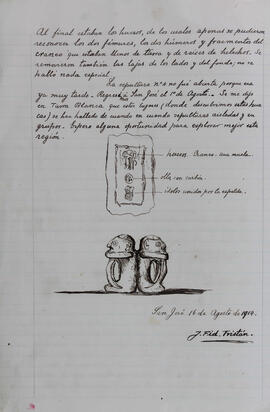 Al final estaban los huesos, de los cuales apenas se pudieron
reconocer los dos fémures, los dos húmeros y fragmentos del
craneo que estaban llenos de tierra y de raices de helechos. Se
removieron también las lajas de los lados y del fondo; no se
halló nada especial.
La sepultura nº 6 no fué abierta, porque era
ya muy tarde. Regresé á San José el 1º de Agosto. Se me dijo
en Tierra Blanca que este lugar (donde descubrimos estas huacas)
se han hallado de cuando en cuando sepulturas aisladas y en
grupos. Espero alguna oportunidad para explorar mejor esta
región.
huesos. Craneo. una muela.
olla con carbón.
idolos unidos por la espalda.
San José 16 de Agosto de 1910.
J. Fid. Tristán.